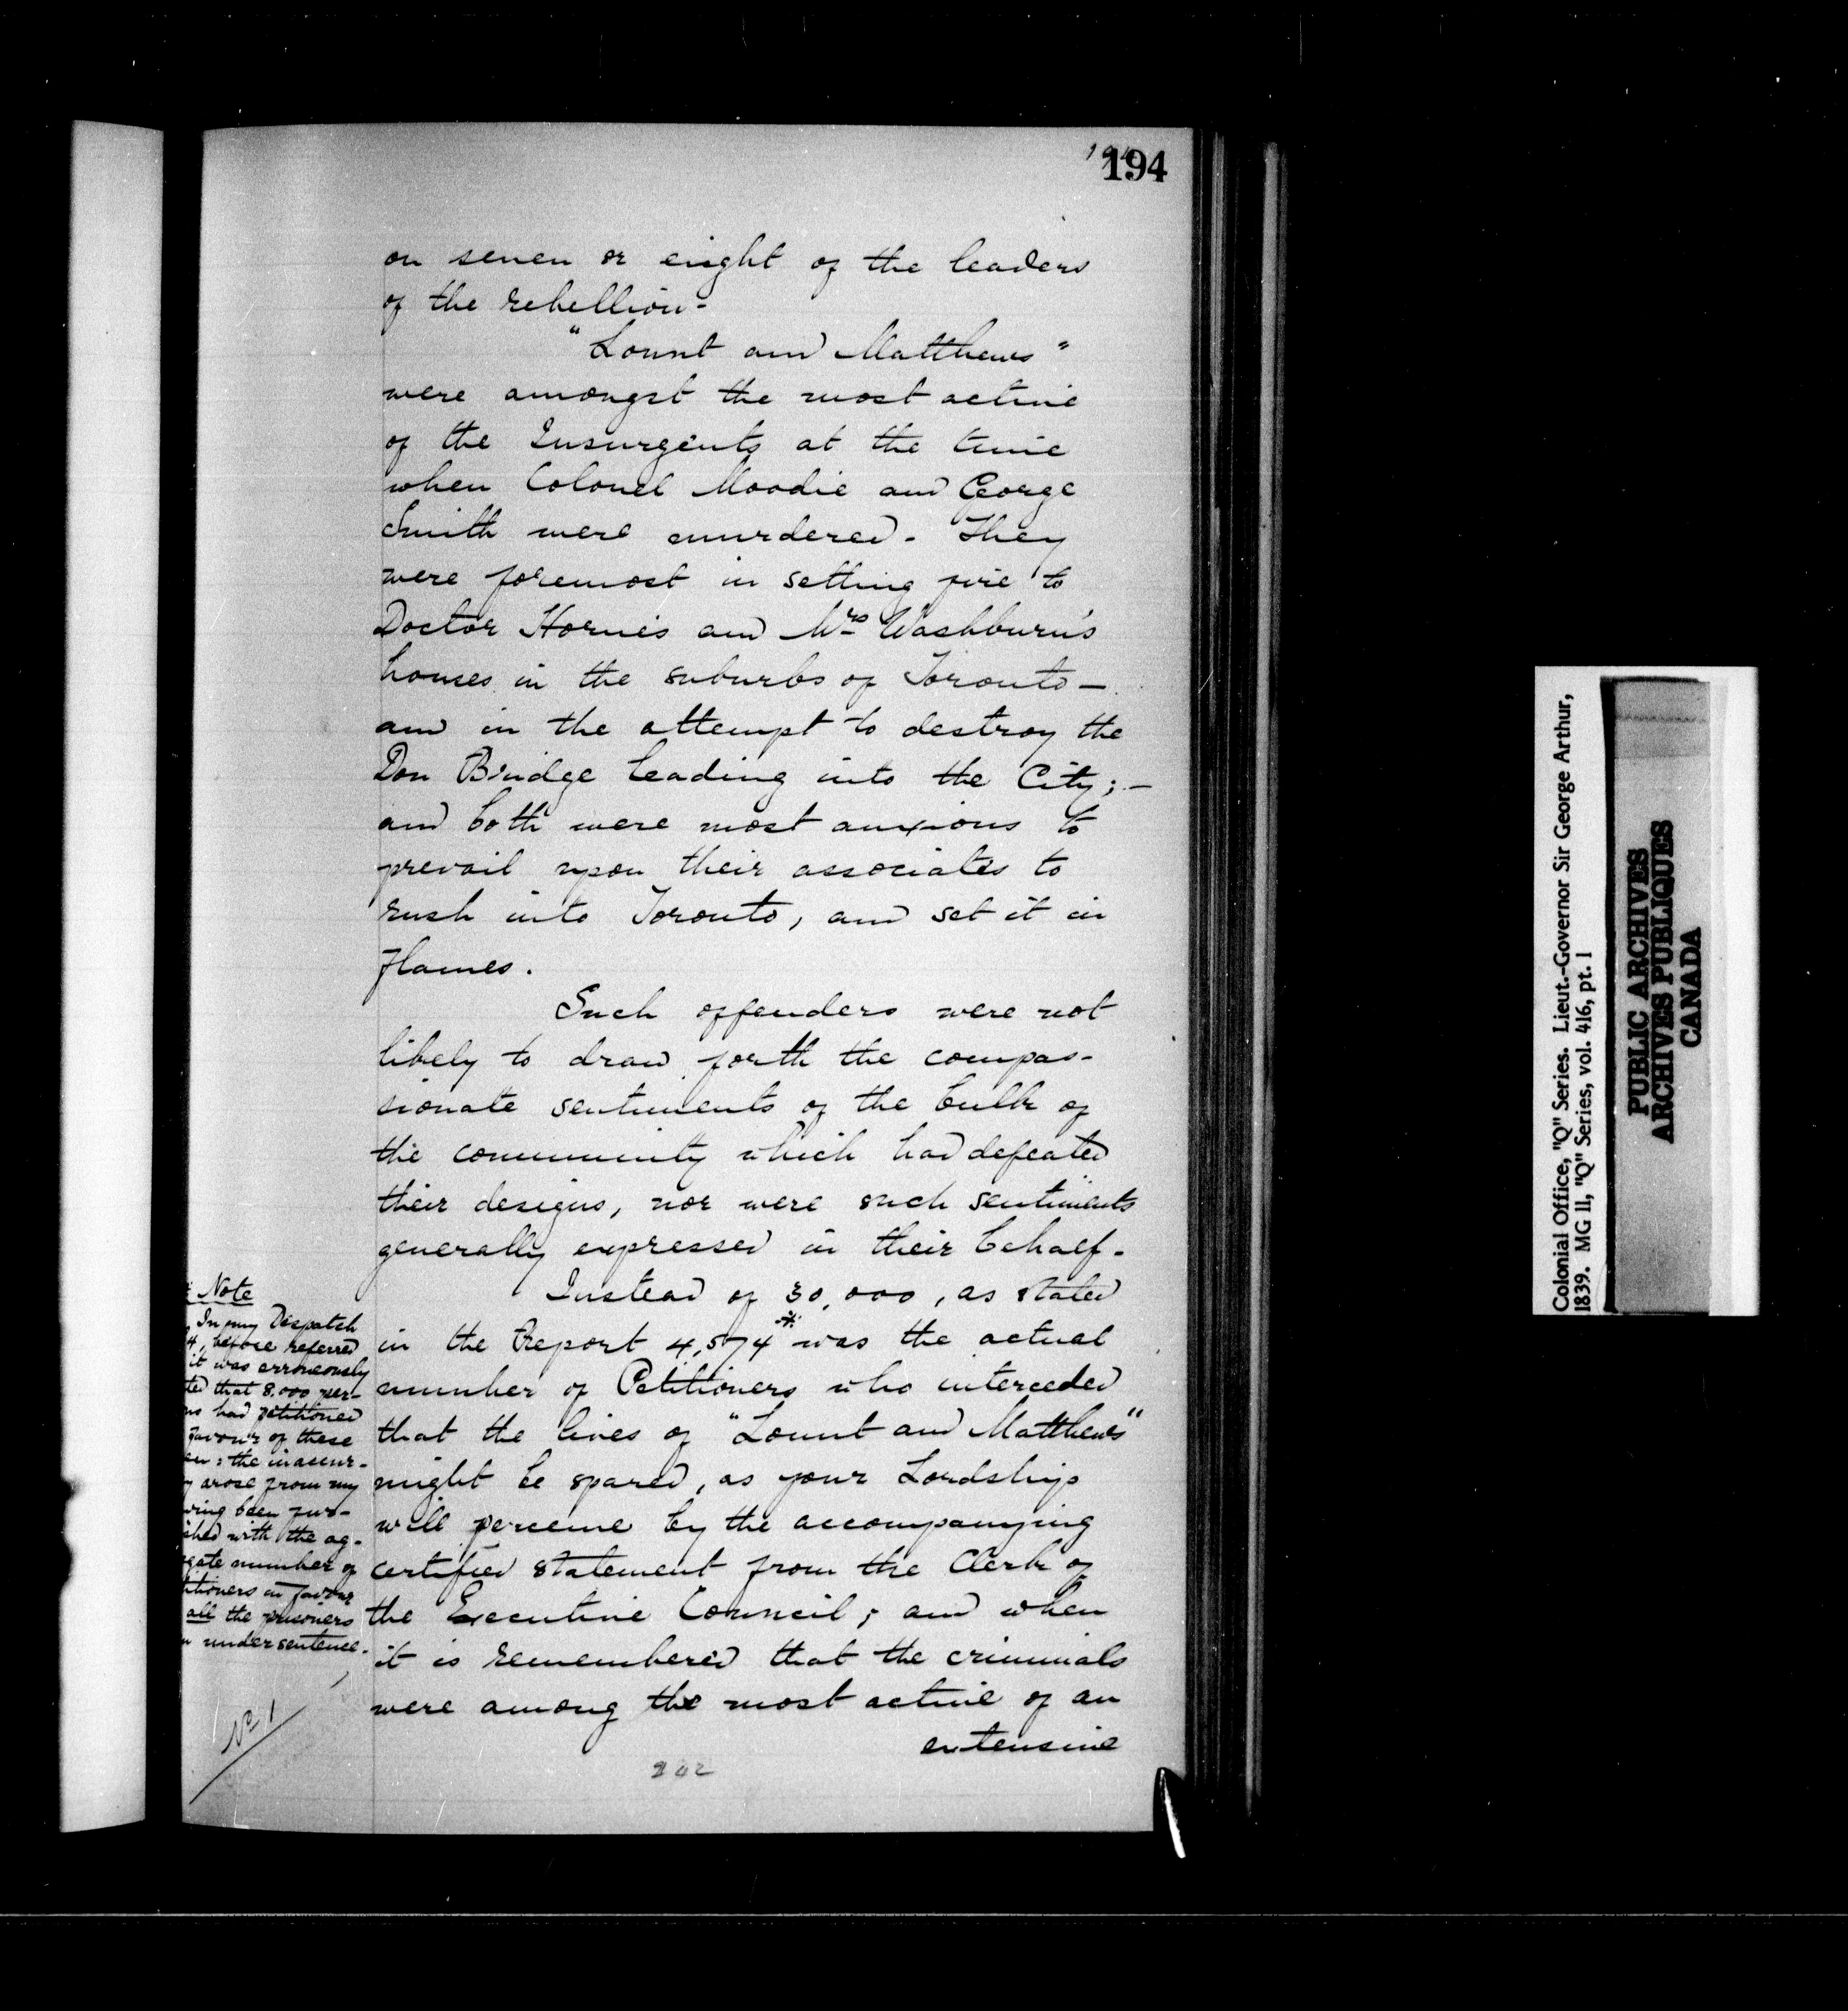 194
on seven or eight of the leaders
of the rebellion-
"Lount and Matthews"
were amongst the most active
of the Insurgents at the time
when Colonel Moodie and George
Smith were murdered. They
were foremost in setting fire to
Doctor Horne's and Mrs Washburn's
houses in the suburbs of Toronto—
and in the attempt to destroy the
Don Bridge leading into the City;—
and both were most anxious to
prevail upon their associates to
rush into Toronto, and set it in
flames.
Such offenders were not
likely to draw forth the compas-
sionate sentiments of the bulk of
the community which had defeated
their designs, nor were such sentiments
generally expressed in their behalf.
Instead of 30,000, as stated
in the Report 4,574* was the actual
number of Petitioners who interceded
that the lives of "Lount and Matthews"
might be spared, as your Lordships
will perceive by the accompanying
certified statement from the Clerk of
the Executive Council; and when
it is remembered that the criminals
were among the most active of an
extensive
* Note
In my Dispatch
4, before referred
it was erroneously
ted that 8.000 per-
ns had petitioned
favour of these
en: the inaccur-
y arose from my
ving been fur-
ished with the ag-
egate number of
titioners in favour
all the prisoners
n under sentence.
No 1
202
Colonial Office, "Q" Series. Lieut.-Governor Sir George Arthur,
1839. MG 11, "Q" Series, vol. 416, pt. 1
PUBLIC ARCHIVES
ARCHIVES PUBLIQUES
CANADA